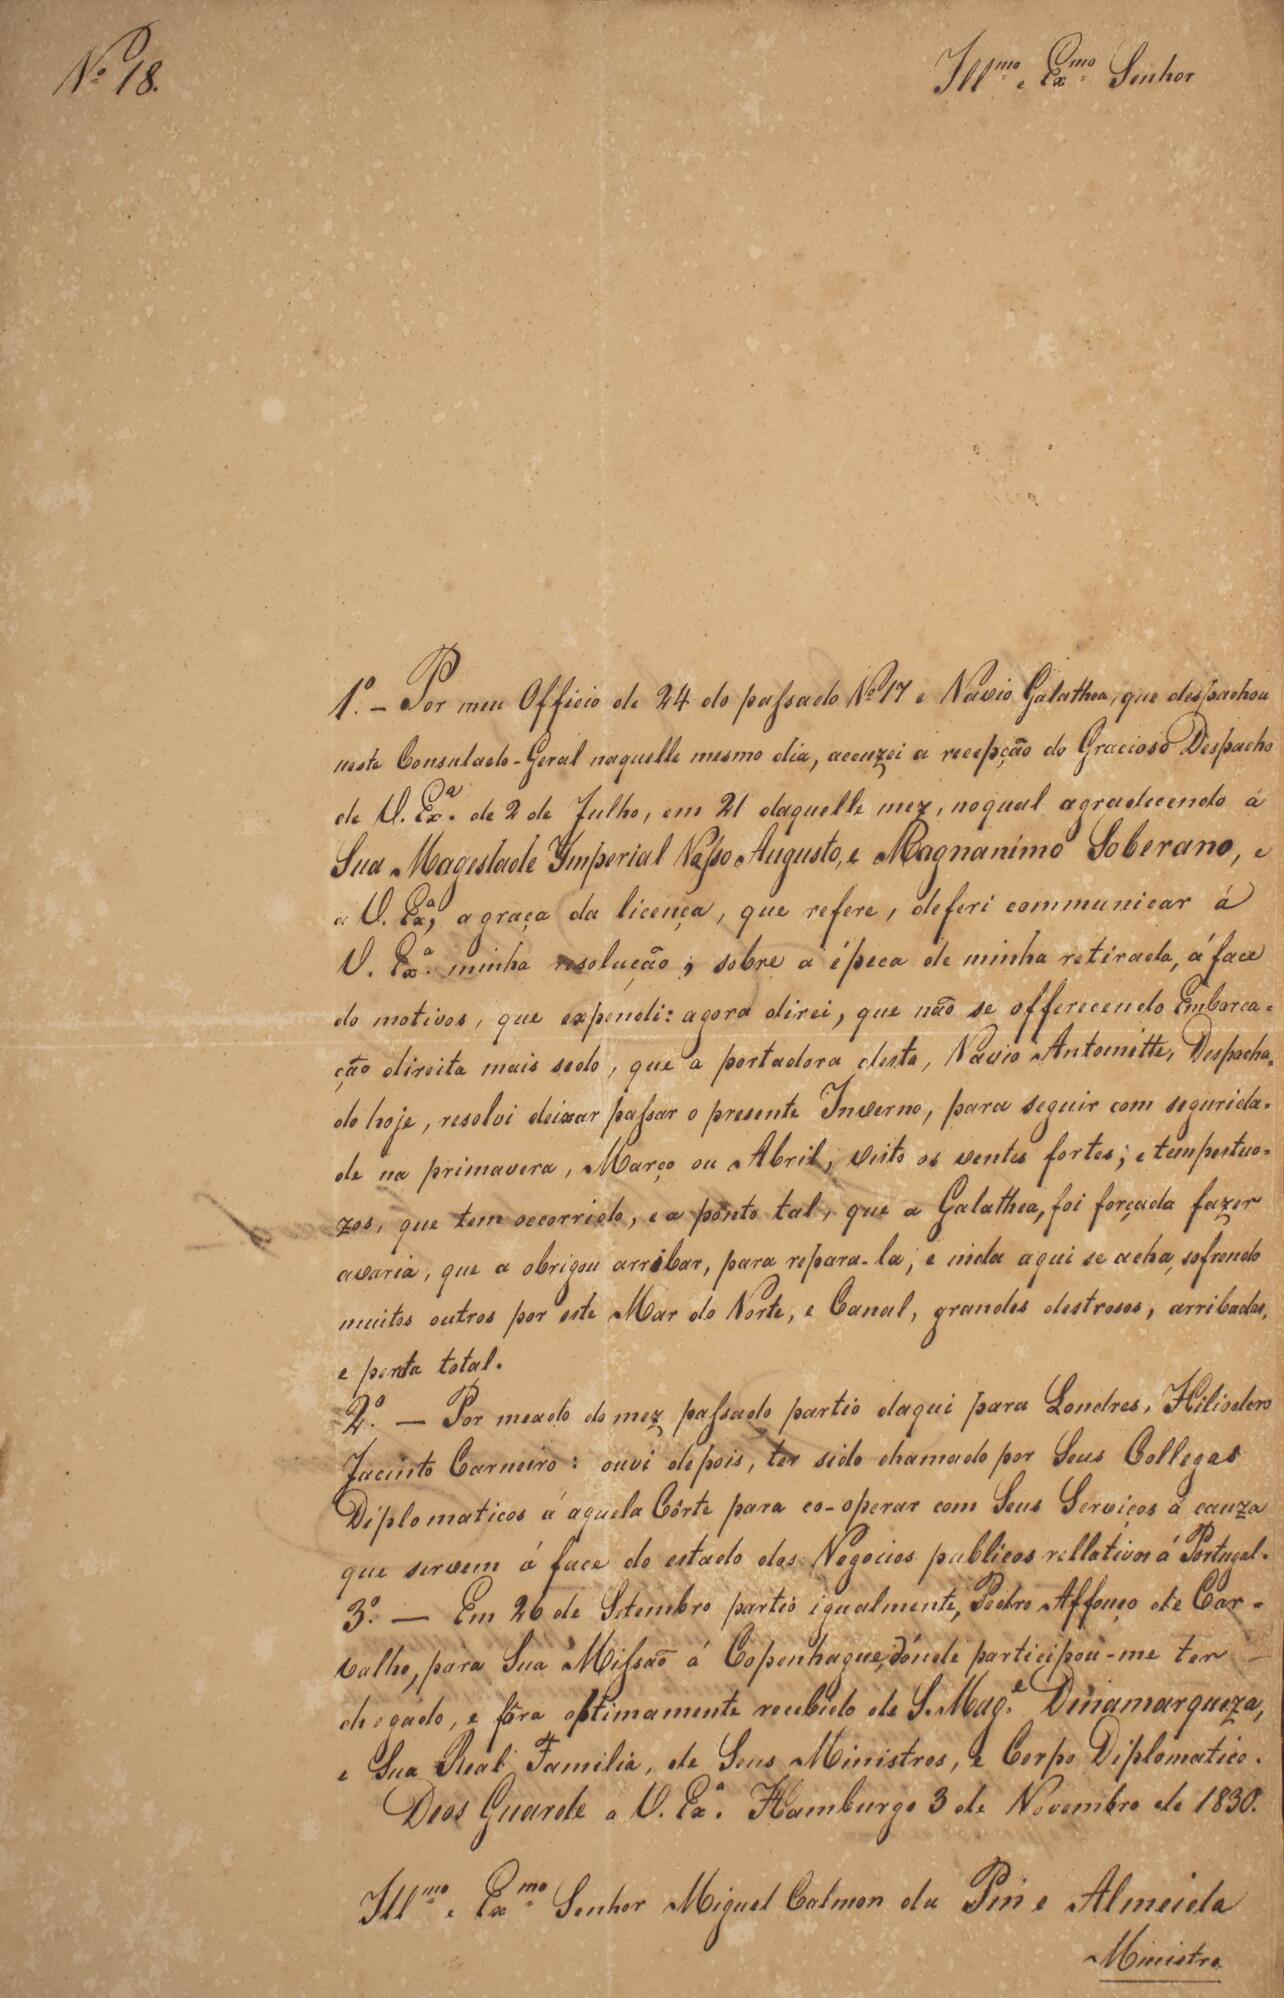 Nº 18.
Illmo e Exmo Senhor
1º. — Por meu Officio de 24 do passado Nº 17 e Navio Galathea, que despachou
neste Consulado-Geral naquelle mesmo dia, acouzei a recepção do Gracioso Despacho
de V. Exª. de 2 de Julho, em 21 daquelle mez, noqual agradecendo á
Sua Magestade Imperial Nosso Augusto, e Magnanimo Soberano, e
a V. Exª, a graça da licença, que refere, deferi communicar á
V. Exª. minha resolução; sobre a épeca de minha retirada, á face
do motivos, que expendi: agora direi, que não se offerecendo Embarca-
ção direita mais sedo, que a portadora desta, Navio Antoinette, Despacha-
do hoje, resolvi deixar passar o presente Inverno, para seguir com segurida-
de na primavera, Março ou Abril, visto os ventos fortes; e tempestuo-
zos, que tem occorrido, e a ponto tal, que a Galathea, foi forçada fazer
avaria, que a obrigou arribar, para repara-la; e inda aqui se acha, sofrendo
muitos outros por este Mar do Norte, e Canal, grandes destrosos, arribadas,
e perda total.
2º. — Por meado do mez passado partio daqui para Londres, Hiliodero
Jacinto Carneiro: ouvi depois, ter sido chamado por Seus Collegas
Diplomaticos á aquela Côrte para co-operar com Seus Serviços a cauza
que servem á face do estado dos Negocios publicos rellativos á Portugal.
3º. — Em 26 de Setembro partio igualmente, Pedro Affonço de Car-
valho, para Sua Missão á Copenhague, dónde participou-me ter
chegado, e fôra optimamente recebido de S. Mage. Dinamarqueza,
e Sua Real Familia, de Seus Ministros, e Corpo Diplomatico.
Deos Guarde a V. Exª. Hamburgo 3 de Novembro de 1830.
Illmo e Exmo Senhor Miguel Calmon du Pin e Almeida
Ministro